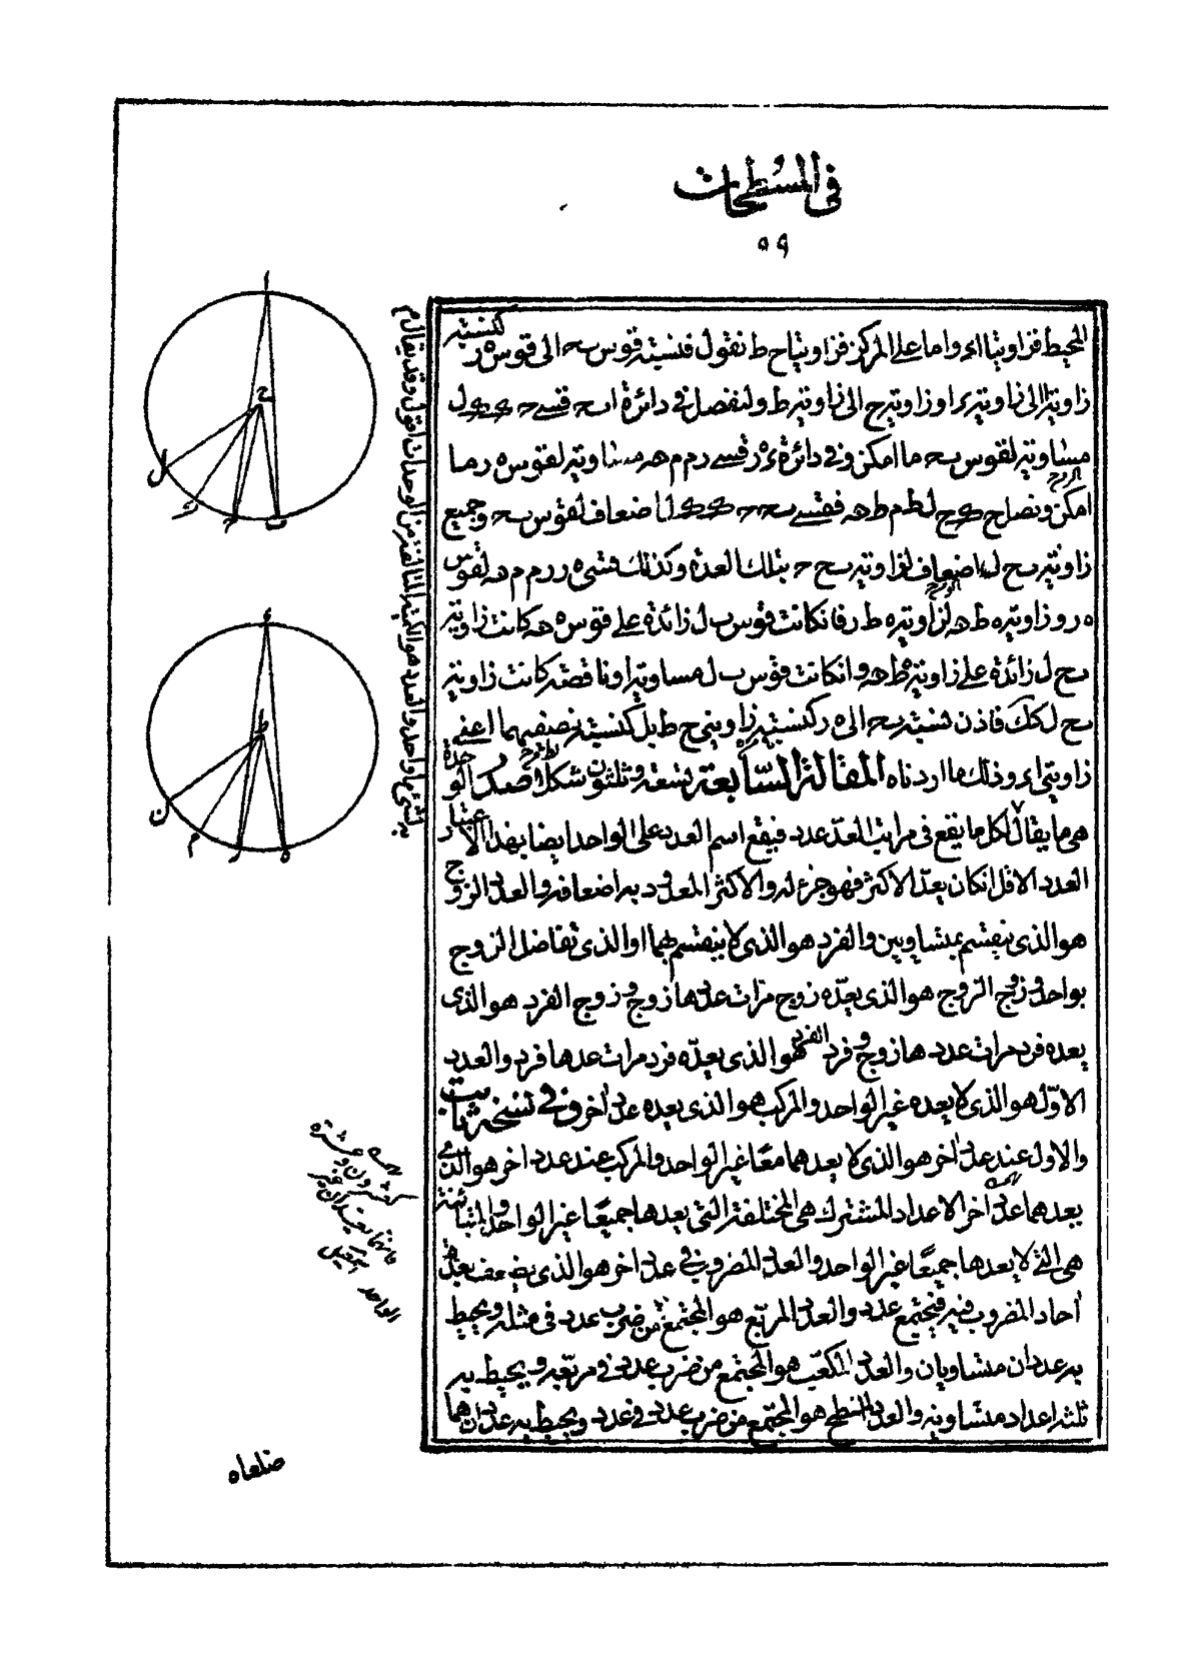 في المسطحات
٥٩
المحيط فزاويتا ا ء واما على المركز فزاويتا ح ط نقول فنسبة قوس ب ح الى قوس ه ر كنسبة
زاوية ا الى زاوية ء او زاوية ح الى زاوية ط ولنفصل في دائرة ا ب ح قسي ح ك ك ل
مساوية لقوس ب ح ما امكن وفي دائرة ء ه ر قسي ر م م ن مساوية لقوس ه ر ما
امكن ونصل ح ك ح ل ط م ط ن فقسي ب ح ح ك ك ل اضعاف لقوس ب ح وجميع
زاوية ب ح ل اضعاف لزاوية ب ح ح بتلك العدة وكذلك قسي ه ر ر م م ن لقوس
ه ر وزاوية ه ط ن لزاوية ه ط ر فان كانت قوس ب ل زائدة على قوس ه ن كانت زاوية
ب ح ل زائدة على زاوية ه ط ن وان كانت قوس ب ل مساوية او ناقصة كانت زاوية
ب ح ل كك فاذن نسبة ب ح الى ه ر كنسبة زاويتي ح ط بل كنسبة نصفيهما اعني
زاويتي ا ء وذلك ما اردناه المقالة السابعة تسعة وثلثون شكلا صدر الوحدة
هي ما يقال لكل ما يقع في مراتب العد عدد فيقع اسم العدد على الواحد ايضا بهذا الاعتبار
العدد الاقل ان كان يعد الاكثر فهو جزء له والاكثر المعدود به اضعافه والعدد الزوج
هو الذي ينقسم بمتساويين والفرد هو الذي لا ينقسم بهما او الذي تفاضل الزوج
بواحد وزوج الزوج هو الذي يعده زوج مرات عددها زوج وزوج الفرد هو الذي
يعده فرد مرات عددها زوج وفرد الفرد هو الذي يعده فرد مرات عددها فرد والعدد
الاول هو الذي لا يعده غير الواحد والمركب هو الذي يعده عدد آخر وفي نسخة ثابت
والاول عند عدد آخر هو الذي لا يعدهما معا غير الواحد والمركب عند عدد اخر هو الذي
يعدهما عدد آخر الاعداد المشتركة هي المختلفة التي يعدها جميعا غير الواحد والمتباينة
هي التي لا يعدها جميعا غير الواحد والعدد المضروب في عدد اخر هو الذي يضعف بعدة
آحاد المضروب فيه فيجتمع عدد والعدد المربع هو المجتمع من ضرب عدد في مثله ويحيط
به عددان متساويان والعدد المكعب هو المجتمع من ضرب عدد في مربعه ويحيط به
ثلثة اعداد متساوية والعدد المسطح هو المجتمع من ضرب عدد في عدد ويحيط به عددان هما
ضلعاه
كعشرون وعشرة
الواحد
ا
ح
ل
ك
ح
ب
ء
ط
ن
م
ر
ه